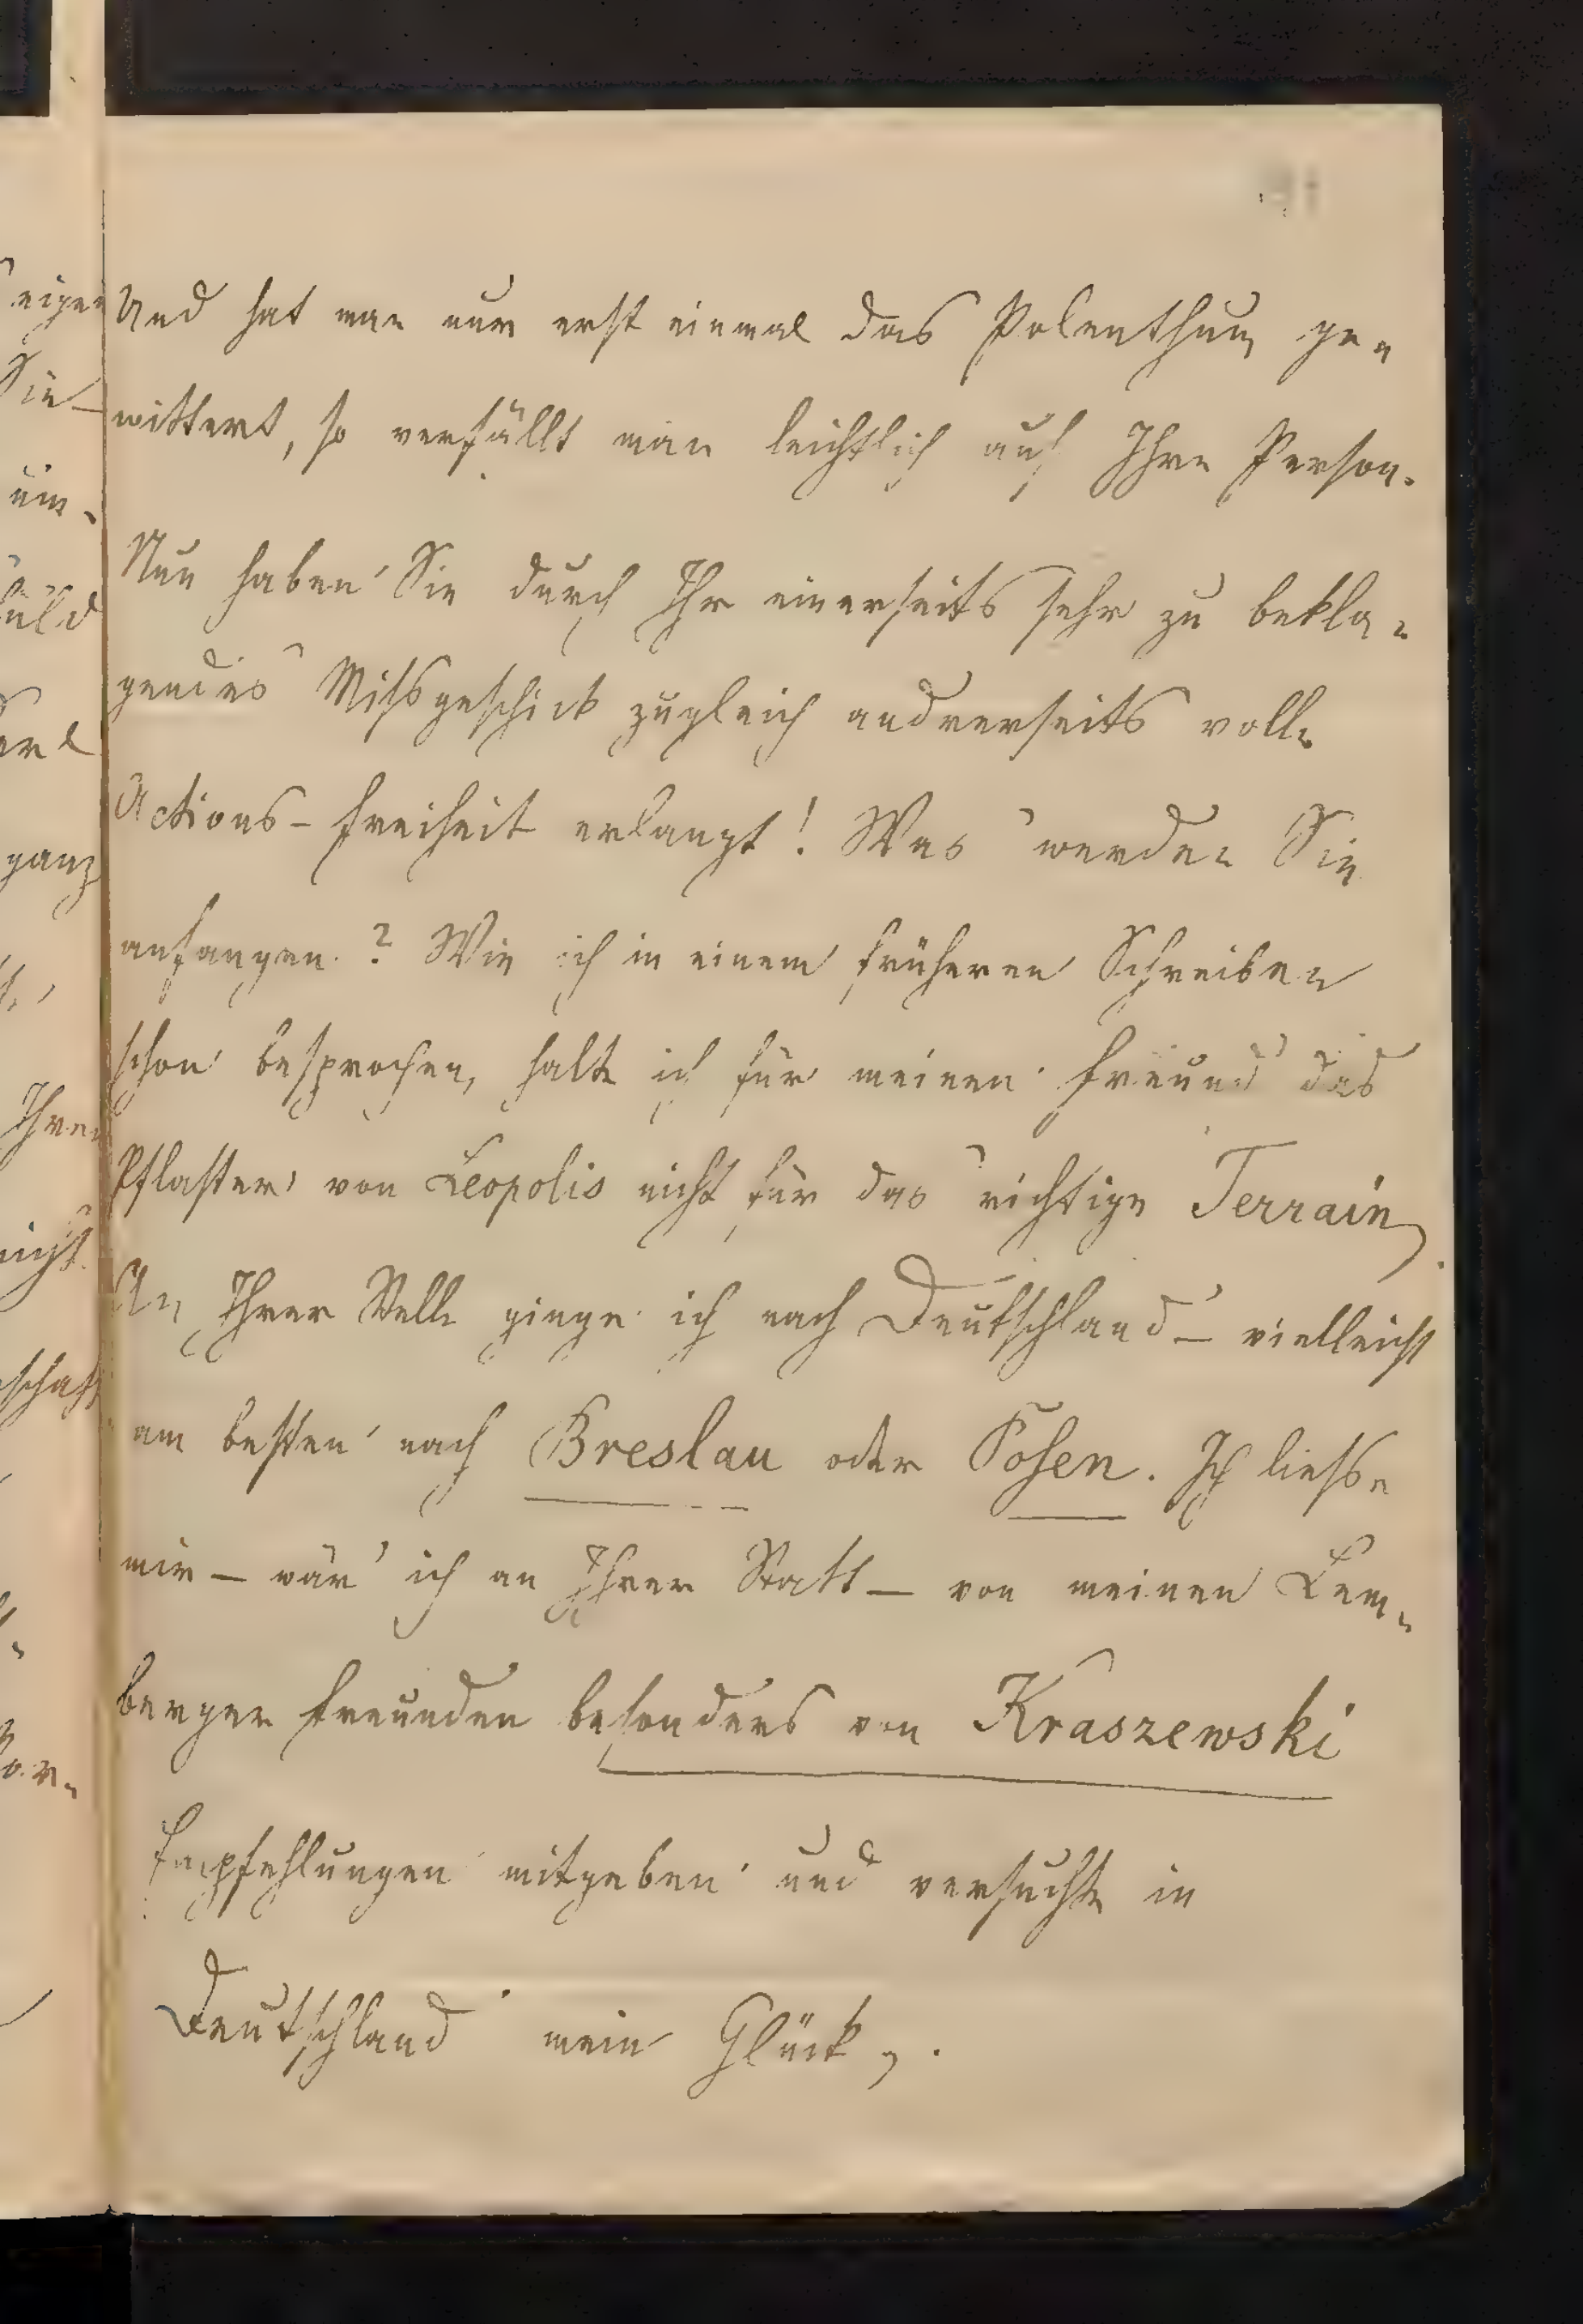 Und hat man nur erst einmal das Polenthum ge-
wittert, so verfällt man leichtlich auf Ihre Person.
Nun haben Sie durch Ihr einerseits sehr zu bekla-
gendes Missgeschick zugleich andrerseits volle
Actions-Freiheit erlangt! Was werden Sie
anfangen? Wie ich in einem früheren Schreiben
schon besprochen, halte ich für meinen Freund das
Pflaster von Leopolis nicht für das richtige Terrain.
An Ihrer Stelle ginge ich nach Deutschland – vielleicht
am besten nach Breslau oder Posen. Ich liesse
mir – wär' ich an Ihrer Statt – von meinen Lem-
berger Freunden besonders von Kraszewski
Empfehlungen mitgeben und versuchte in
Deutschland mein Glück.